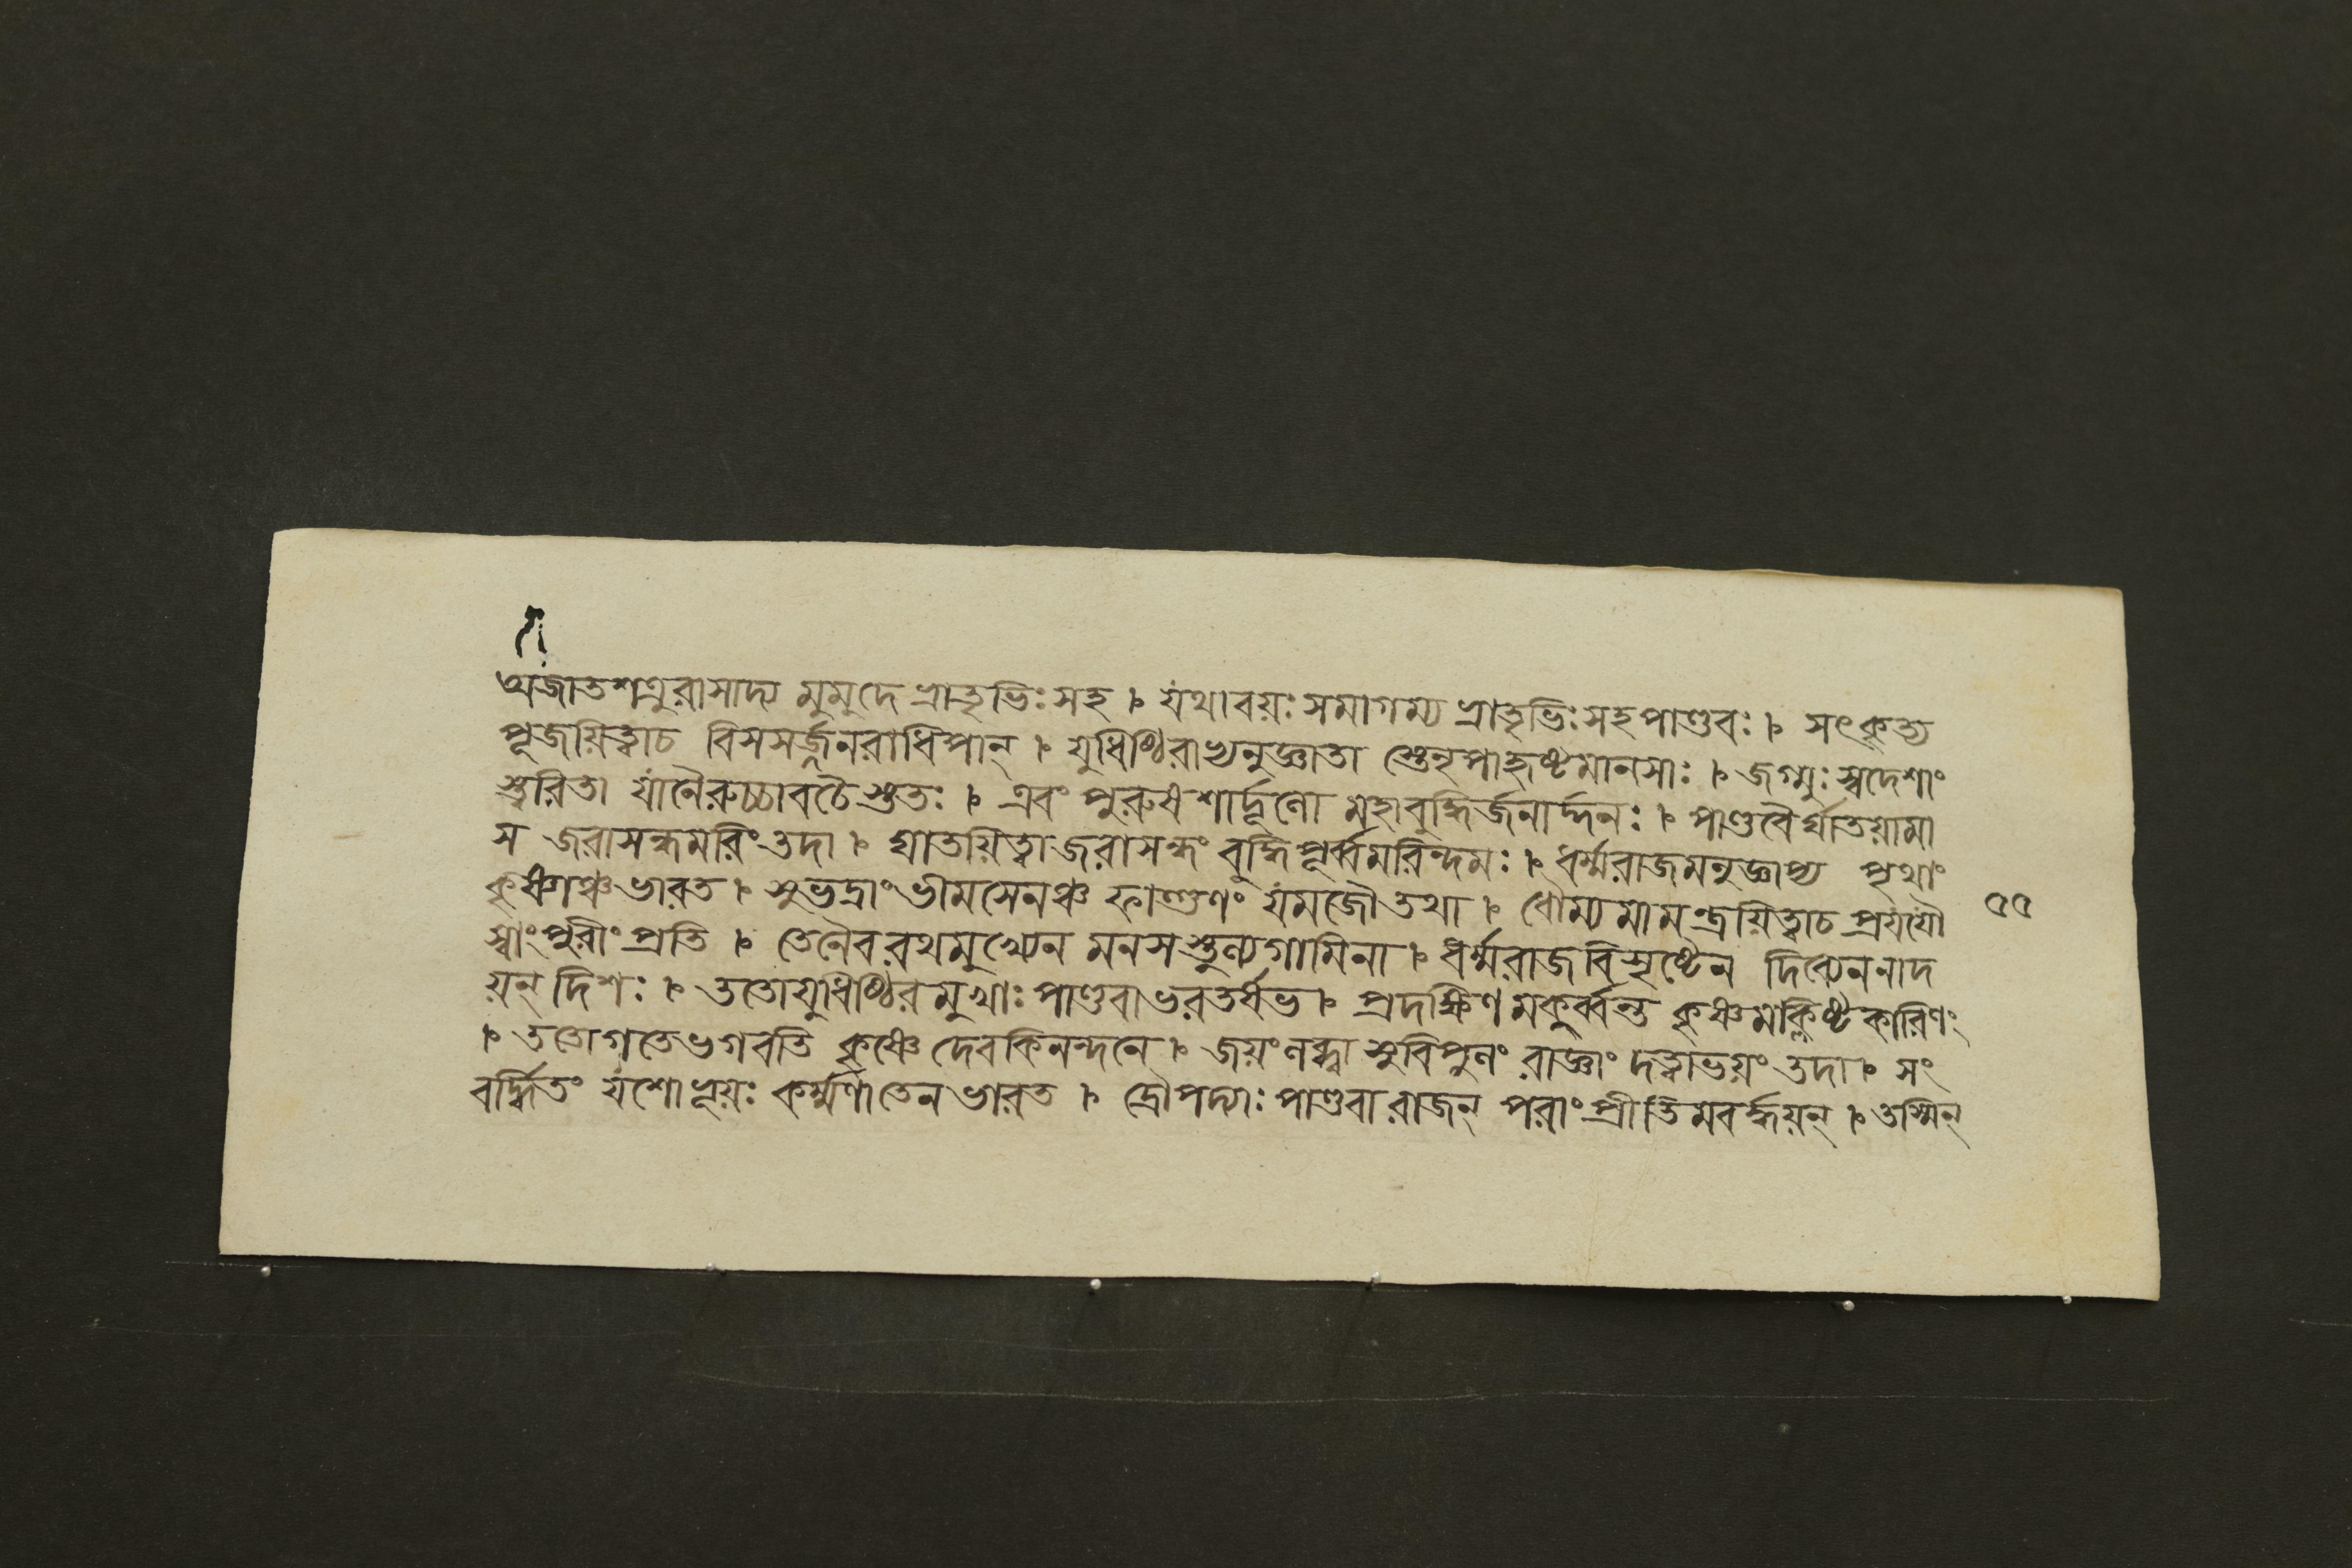 অজাতশত্রুরাসাদ্য মুমুদে ভ্রাতৃভিঃ সহ । যথাবয়ঃ সমাগম্য ভ্রাতৃভিঃ সহ পাণ্ডবঃ । সৎকৃত্য
পূজয়িত্বাচ বিসসর্জ্জনরাধিপান্ । যুধিষ্ঠিরাভ্যনুজ্ঞাতা স্তেনৃপাহৃষ্টমানসাঃ । জগ্মুঃ স্বদেশাং
স্ত্বরিতা যানৈরুচ্চাবচৈস্ততঃ । এবং পুরুষশার্দ্দূলো মহাবুদ্ধির্জনার্দ্দনঃ । পাণ্ডবৈর্ঘাতয়ামা
স জরাসন্ধমরিং তদা । ঘাতয়িত্বাজরাসন্ধং বুদ্ধিপূর্ব্বমরিন্দমঃ । ধর্ম্মরাজমনুজ্ঞাপ্য পৃথাং
কৃষ্ণাঞ্চভারত । সুভদ্রাং ভীমসেনঞ্চ ফাল্গুণং যমজৌতথা । ধৌম্যমামন্ত্রয়িত্বাচ প্রযযৌ
৫৫
স্বাং পুরীং প্রতি । তেনৈবরথমুখ্যেন মনসস্তুল্যগামিনা । ধর্ম্মরাজবিসৃষ্টেন দিব্যেননাদ
য়ন্ দিশঃ । ততোযুধিষ্ঠিরমুখাঃ পাণ্ডবাভরতর্ষভ । প্রদক্ষিণমকুর্ব্বন্ত কৃষ্ণমক্লিষ্টকারিণং
। ততোগতেভগবতি কৃষ্ণে দেবকিনন্দনে । জয়ংলব্ধ্বা সুবিপুলং রাজ্ঞাং দত্ত্বাভয়ং তদা । সং
বর্দ্ধিতং যশোভূয়ঃ কর্ম্মণাতেনভারত । দ্রৌপদ্যাঃ পাণ্ডবা রাজন্ পরাং প্রীতিমবর্দ্ধয়ন্ । তস্মিন্